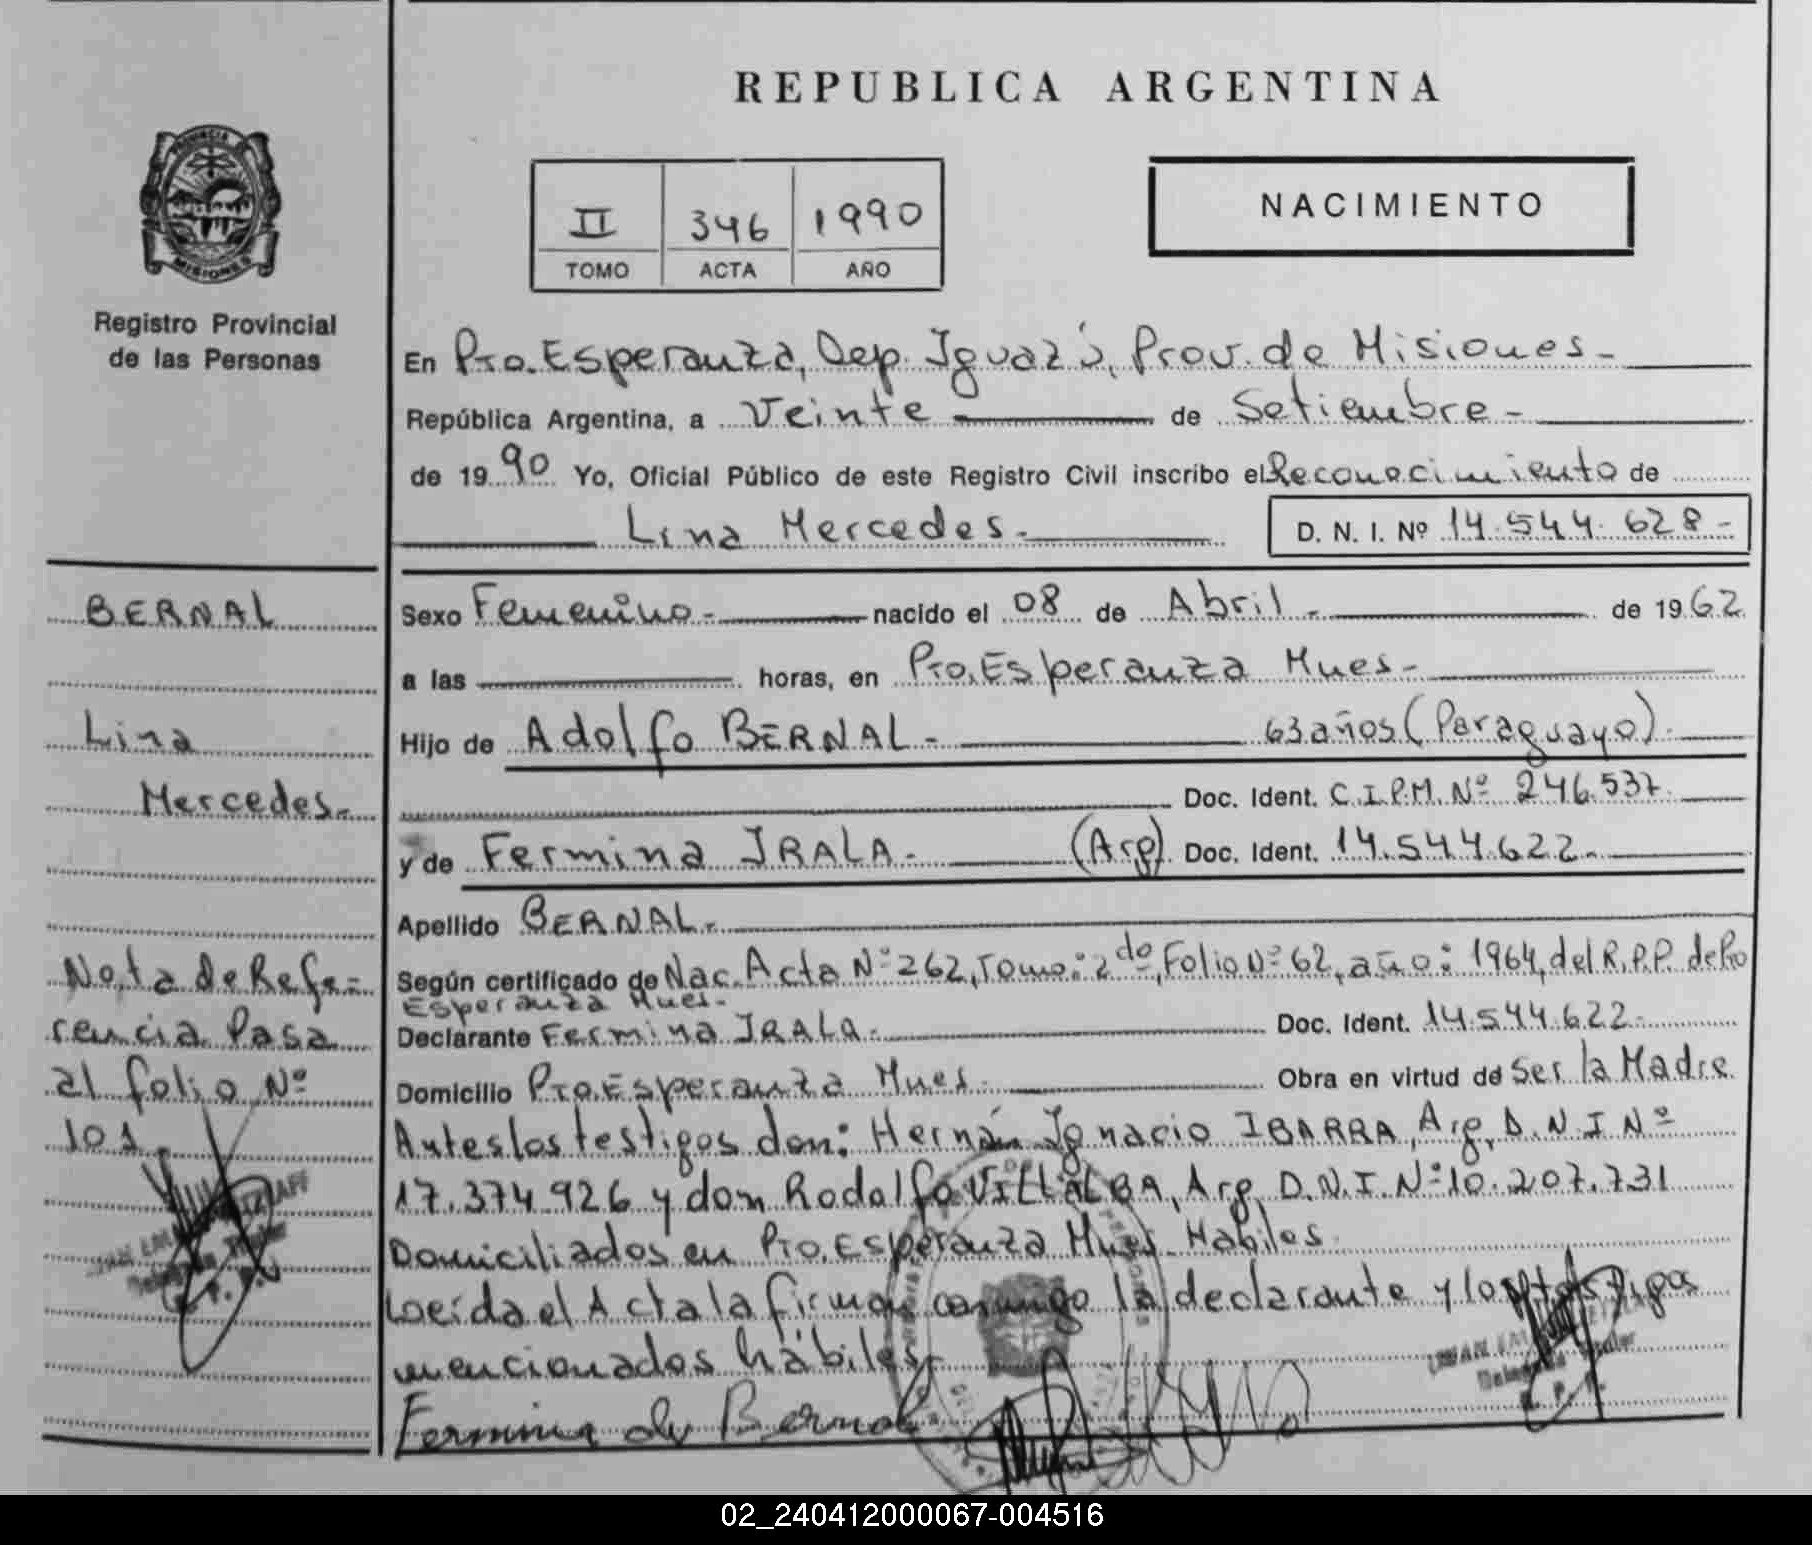 REPUBLICA ARGENTINA
PROVINCIA
MISIONES
Registro Provincial
de las Personas
II 346 1990
TOMO ACTA AÑO
NACIMIENTO
En Pto. Esperanza, Dep. Iguazú, Prov. de Misiones-
República Argentina, a Veinte de Setiembre-
de 1990 Yo, Oficial Público de este Registro Civil inscribo el Reconocimiento de
Lina Mercedes- D. N. I. Nº 14.544.628-
BERNAL
Lina
Mercedes-
Nota de Refe-
rencia Pasa
al folio Nº
101.
Sexo Femenino- nacido el 08 de Abril- de 1962
a las horas, en Pto. Esperanza Mnes-
Hijo de Adolfo BERNAL- 63 años (Paraguayo).
Doc. Ident. C.I.P.M. Nº 246.537.
y de Fermina IRALA- (Arg). Doc. Ident. 14.544.622-
Apellido BERNAL-
Según certificado de Nac. Acta Nº 262, Tomo: 2do, Folio Nº 62, año: 1964, del R.P.P. de Pto
Esperanza Mnes-
Declarante Fermina IRALA- Doc. Ident. 14.544.622-
Domicilio Pto. Esperanza Mnes- Obra en virtud de Ser la Madre
Antes los testigos don: Hernán Ignacio IBARRA, Arg. D.N.I Nº
17.374.926 y don Rodolfo VILLALBA, Arg. D.N.I. Nº 10.207.731
Domiciliados en Pto. Esperanza Mnes. Habiles
Leída el Acta la firman conmigo la declarante y los testigos
mencionados hábiles-
Fermina de Bernal
02_240412000067-004516